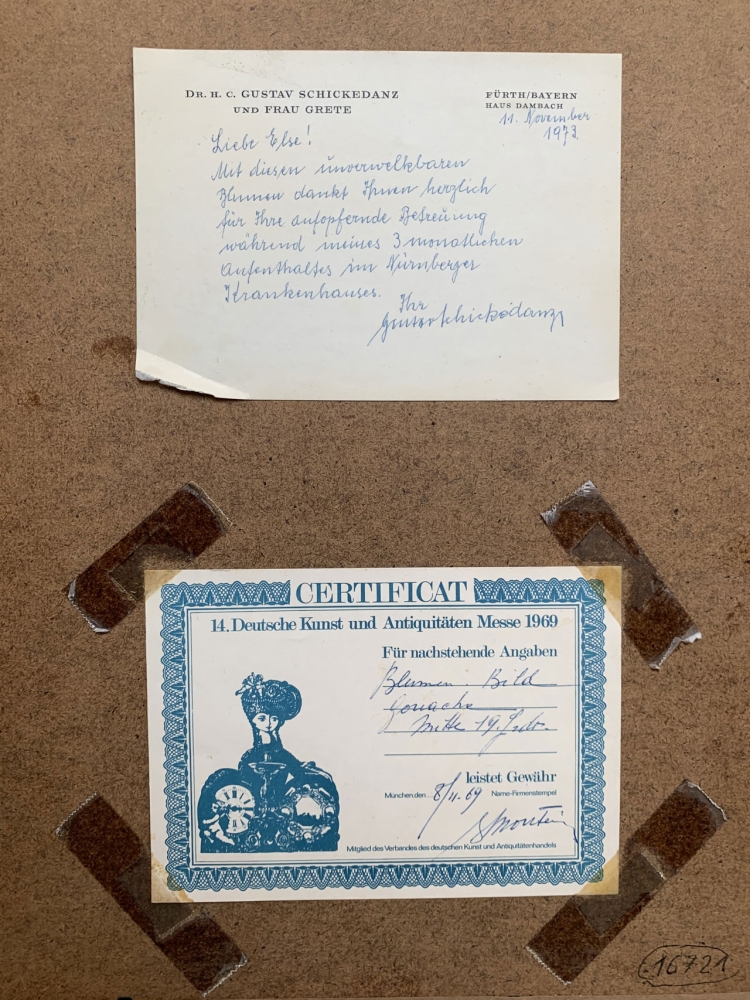 DR. H. C. GUSTAV SCHICKEDANZ
UND FRAU GRETE
FÜRTH/BAYERN
HAUS DAMBACH
11. November
1973
Liebe Else!
Mit diesen unverwelkbaren
Blumen dankt Ihnen herzlich
für Ihre aufopfernde Betreuung
während meines 3 monatlichen
Aufenthaltes im Nürnberger
Krankenhauses.
Ihr
Gustav Schickedanz
CERTIFICAT
14. Deutsche Kunst und Antiquitäten Messe 1969
Für nachstehende Angaben
Blumen Bild
Gouache
Mitte 19. Jhdt.
leistet Gewähr
München, den 8/11.69 Name-Firmenstempel
Mitglied des Verbandes des deutschen Kunst und Antiquitätenhandels
16721